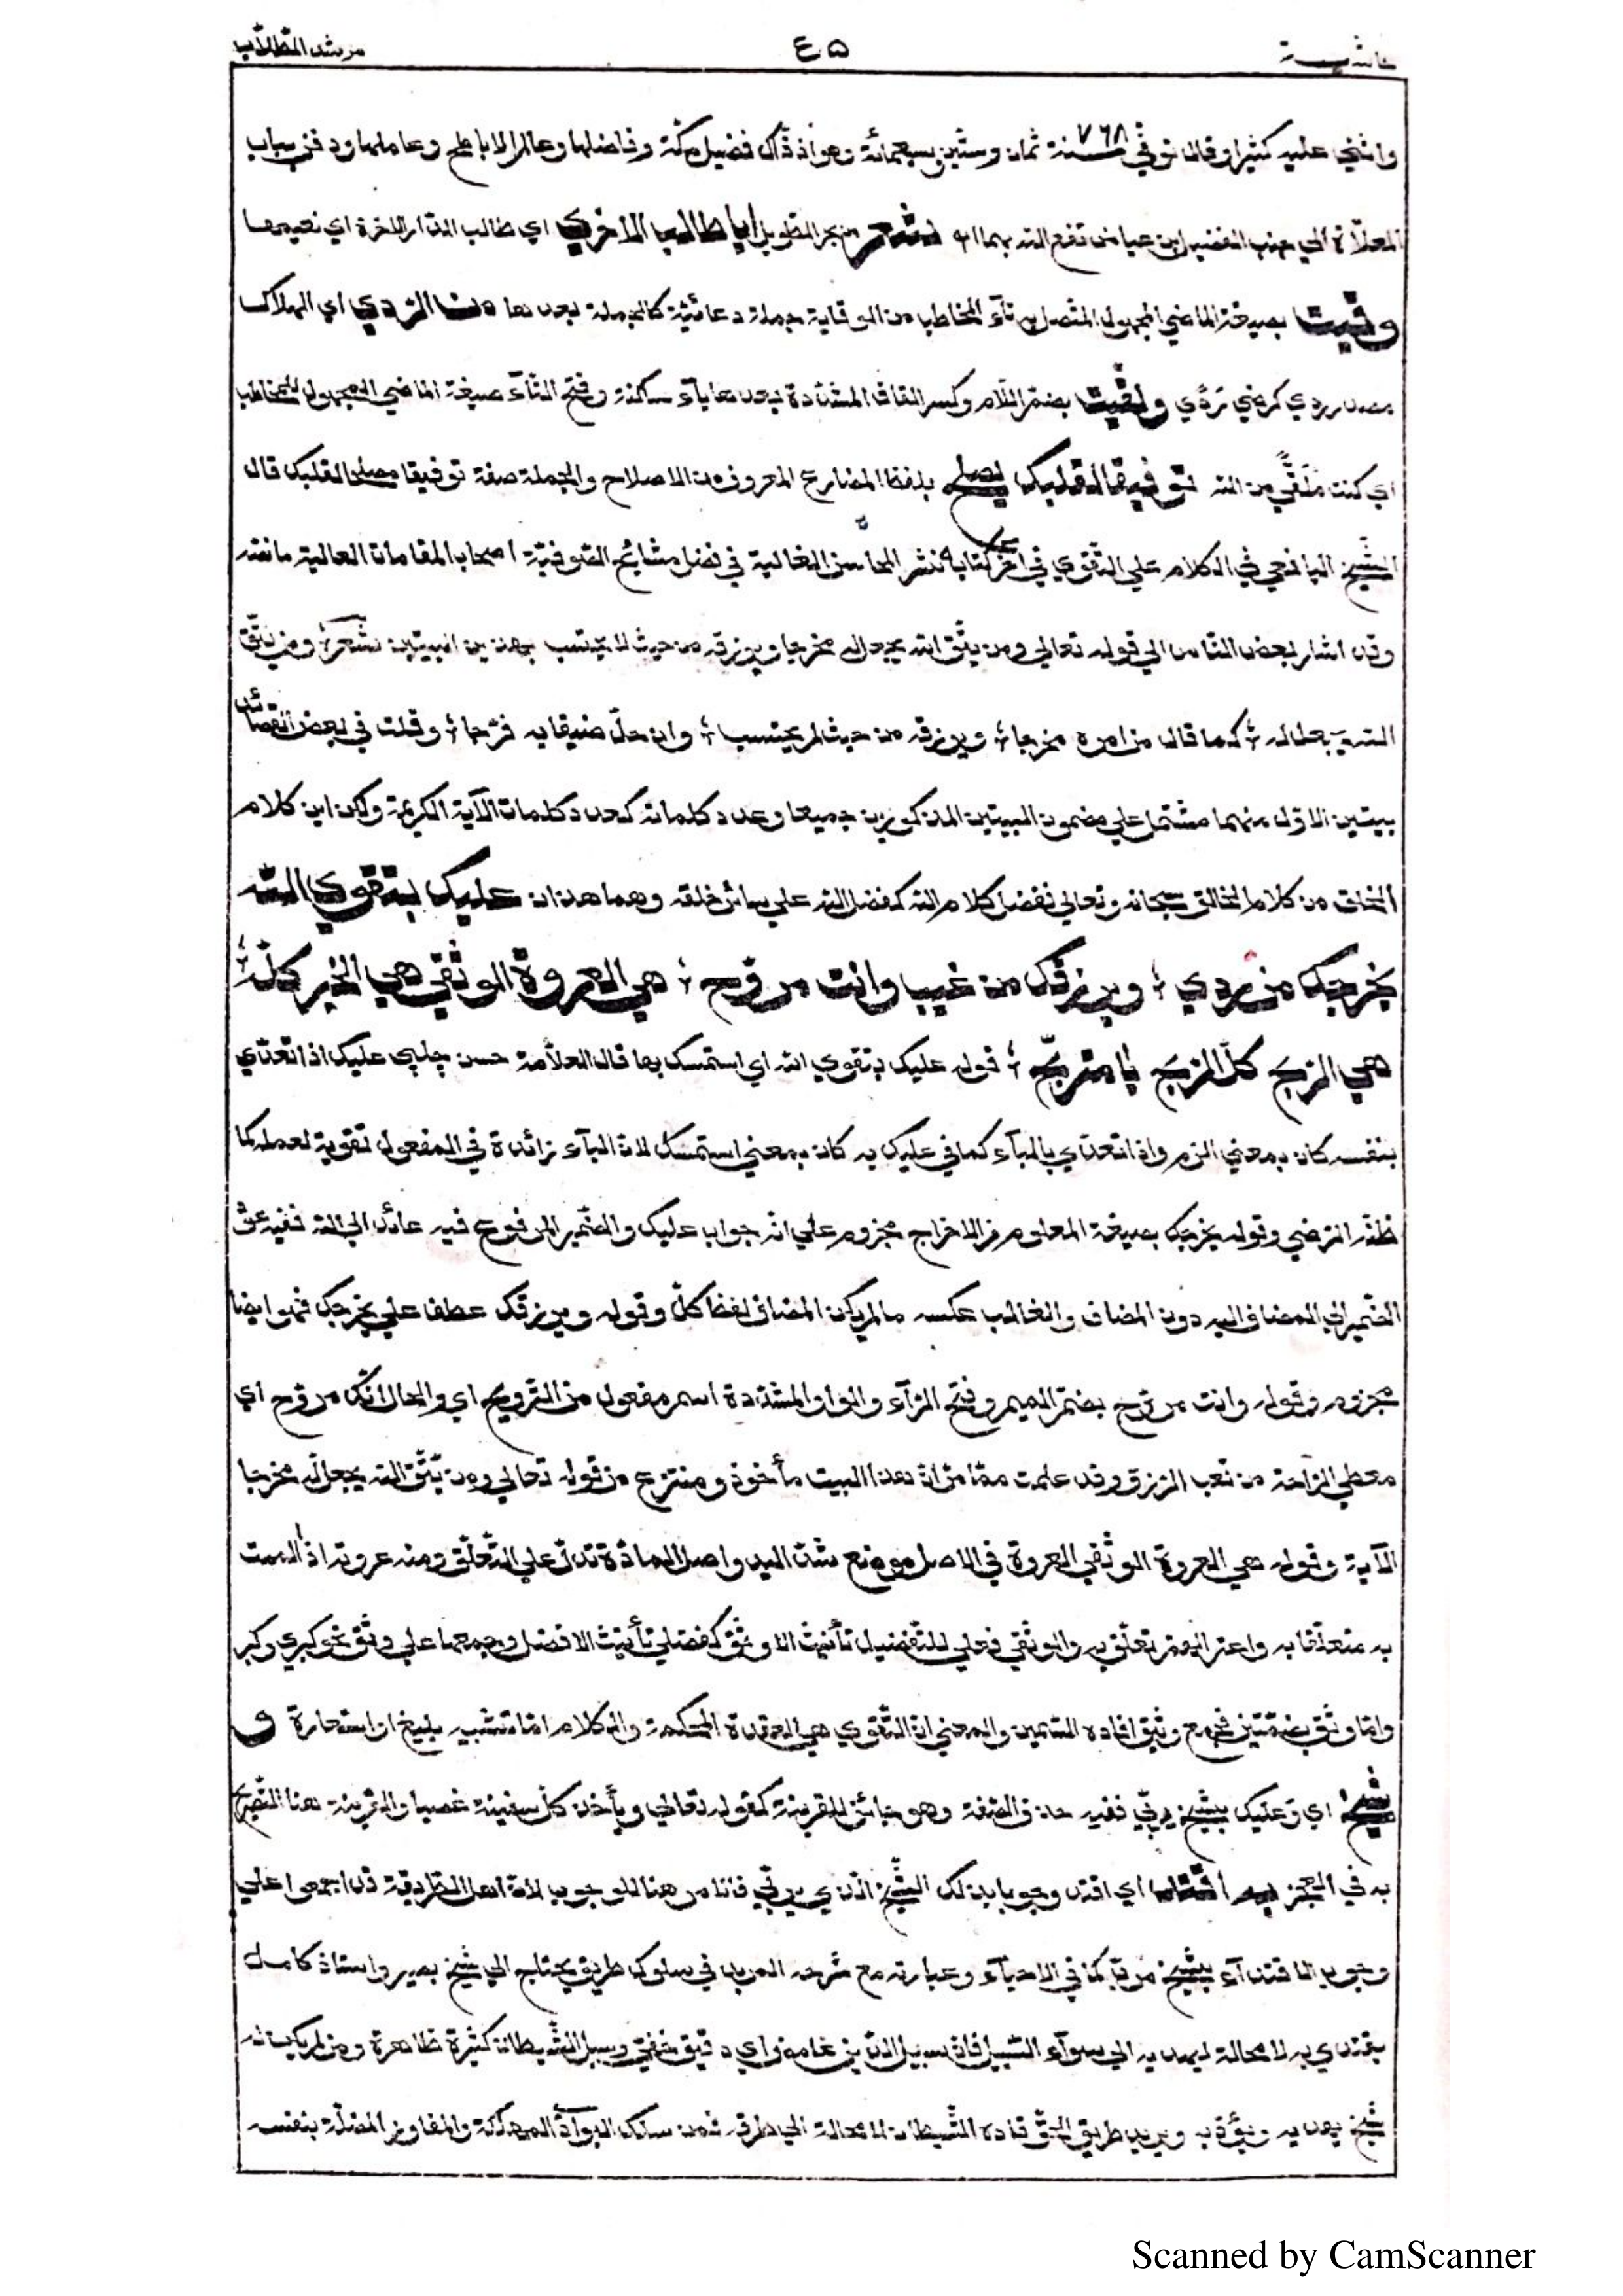 حاشية ٤٥ مرشد الطلاب
واثني عليه كثيرا وقال توفي ٧٦٨ سنة ثمان وستين وسبعمائة وهو اذ ذاك فضيل مكة وفاضلها وعالم الاباطح وعاملها ودفن بباب
المعلاة الي جنب الفضيل ابن عياض نفع الله بهما اه شعر من بحر الطويل ايا طالب الاخري اي طالب الدار الاخرة اي نعيمها
وقيت بصيغة الماضي المجهول المتصل به تآء المخاطب من الوقاية جملة دعائية كالجملة بعدها من الردي اي الهلاك
مصدر ردي كرضي تردي ولقيت بضم اللام وكسر القاف المشددة بعدها يآء ساكنة وفتح التآء صيغة الماضي المجهول للمخاطب
اي كنت ملقي من الله توفيقا لقلبك يصلح بلفظ المضارع المعروف من الاصلاح والجملة صفة توفيقا مصلحا لقلبك قال
الشيخ اليافعي في الكلام علي التقوي في اخر كتابه نشر المحاسن الغالية في فضل مشائخ الصوفية اصحاب المقامات العالية ما نصه
وقد اشار بعض الناس الي قوله تعالي ومن يتق الله يجعل له مخرجا ويرزقه من حيث لا يحتسب بهذين البيتين شعر ومن يتق
الله يجعل له ؛ كما قال من امره مخرجا ؛ ويرزقه من حيث لم يحتسب ؛ وان حل ضيقا به فرجا ؛ وقلت في بعض القصائد
بيتين الاول منهما مشتمل علي مضمون البيتين المذكورين جميعا وعدد كلماته كعدد كلمات الآية الكريمة ولكن اين كلام
الخلق من كلام الخالق سبحانه وتعالي ففضل كلام الله كفضل الله علي سائر خلقه وهما هذان عليك بتقوي الله
يخرجك من ردي ؛ ويرزقك من غيب وانت مروح ؛ هي العروة الوثقي هي الخير كله ؛
هي الربح كل الربح يا متربح ؛ قوله عليك بتقوي الله اي استمسك بها قال العلامة حسن چلپي عليك اذا تعدي
بنفسه كان بمعني الزم واذا تعدي بالبآء كما في عليك به كان بمعني استمسك لان البآء زائدة في المفعول تقوية لعمله كما
ظنه الرضي وقوله يخرجك بصيغة المعلوم من الاخراج مجزوم علي انه جواب عليك والضمير المرفوع فيه عائد الي الله ففيه عود
الضمير الي المضاف اليه دون المضاف والغالب عكسه ما لم يكن المضاف لفظ كل وقوله ويرزقك عطف علي يخرجك فهو ايضا
مجزوم وقوله وانت مروح بضم الميم وفتح الرآء والواو المشددة اسم مفعول من الترويح اي والحال انك مروح اي
معطي الراحة من تعب الرزق وقد علمت مما مر ان هذا البيت مأخوذ ومنتزع من قوله تعالي ومن يتق الله يجعل له مخرجا
الآية وقوله هي العروة الوثقي العروة في الاصل موضع شد اليد واصل المادة تدل علي التعلق ومنه عروته اذا الممت
به متعلقا به واعتراه الهم تعلق به والوثقي فعلي للتفضيل تأنيث الاوثق كفضلي تأنيث الافضل وجمعها علي وثق نحو كبري وكبر
واما وثق بضمتين فجمع وثيق افاده السمين والمعني ان التقوي هي العقدة المحكمة والكلام اما تشبيه بليغ او استعارة و
شيخ اي وعليك بشيخ مربي ففيه حذف الصفة وهو جائز للقرينة كقوله تعالي ويأخذ كل سفينة غصبا والقرينة هنا التصريح
به في العجز به اقتد اي اقتد وجوبا بذلك الشيخ الذي يربي فالامر هنا للوجوب لان اهل الطريقة قد اجمعوا علي
وجوب الاقتدآء بشيخ مرب كما في الاحيآء وعبارته مع شرحه المريد في سلوك طريق يحتاج الي شيخ بصير واستاذ كامل
يقتدي به لا محالة ليهديه الي سوآء السبيل فان سبيل الدين غامض اي دقيق خفي وسبل الشيطان كثيرة ظاهرة ومن لم يكن له
شيخ يهديه ويؤدبه ويريد طريق الحق قاده الشيطان لا محالة الي طرقه فمن سلك البوادي المهلكة والمفاوز المضلة بنفسه
Scanned by CamScanner